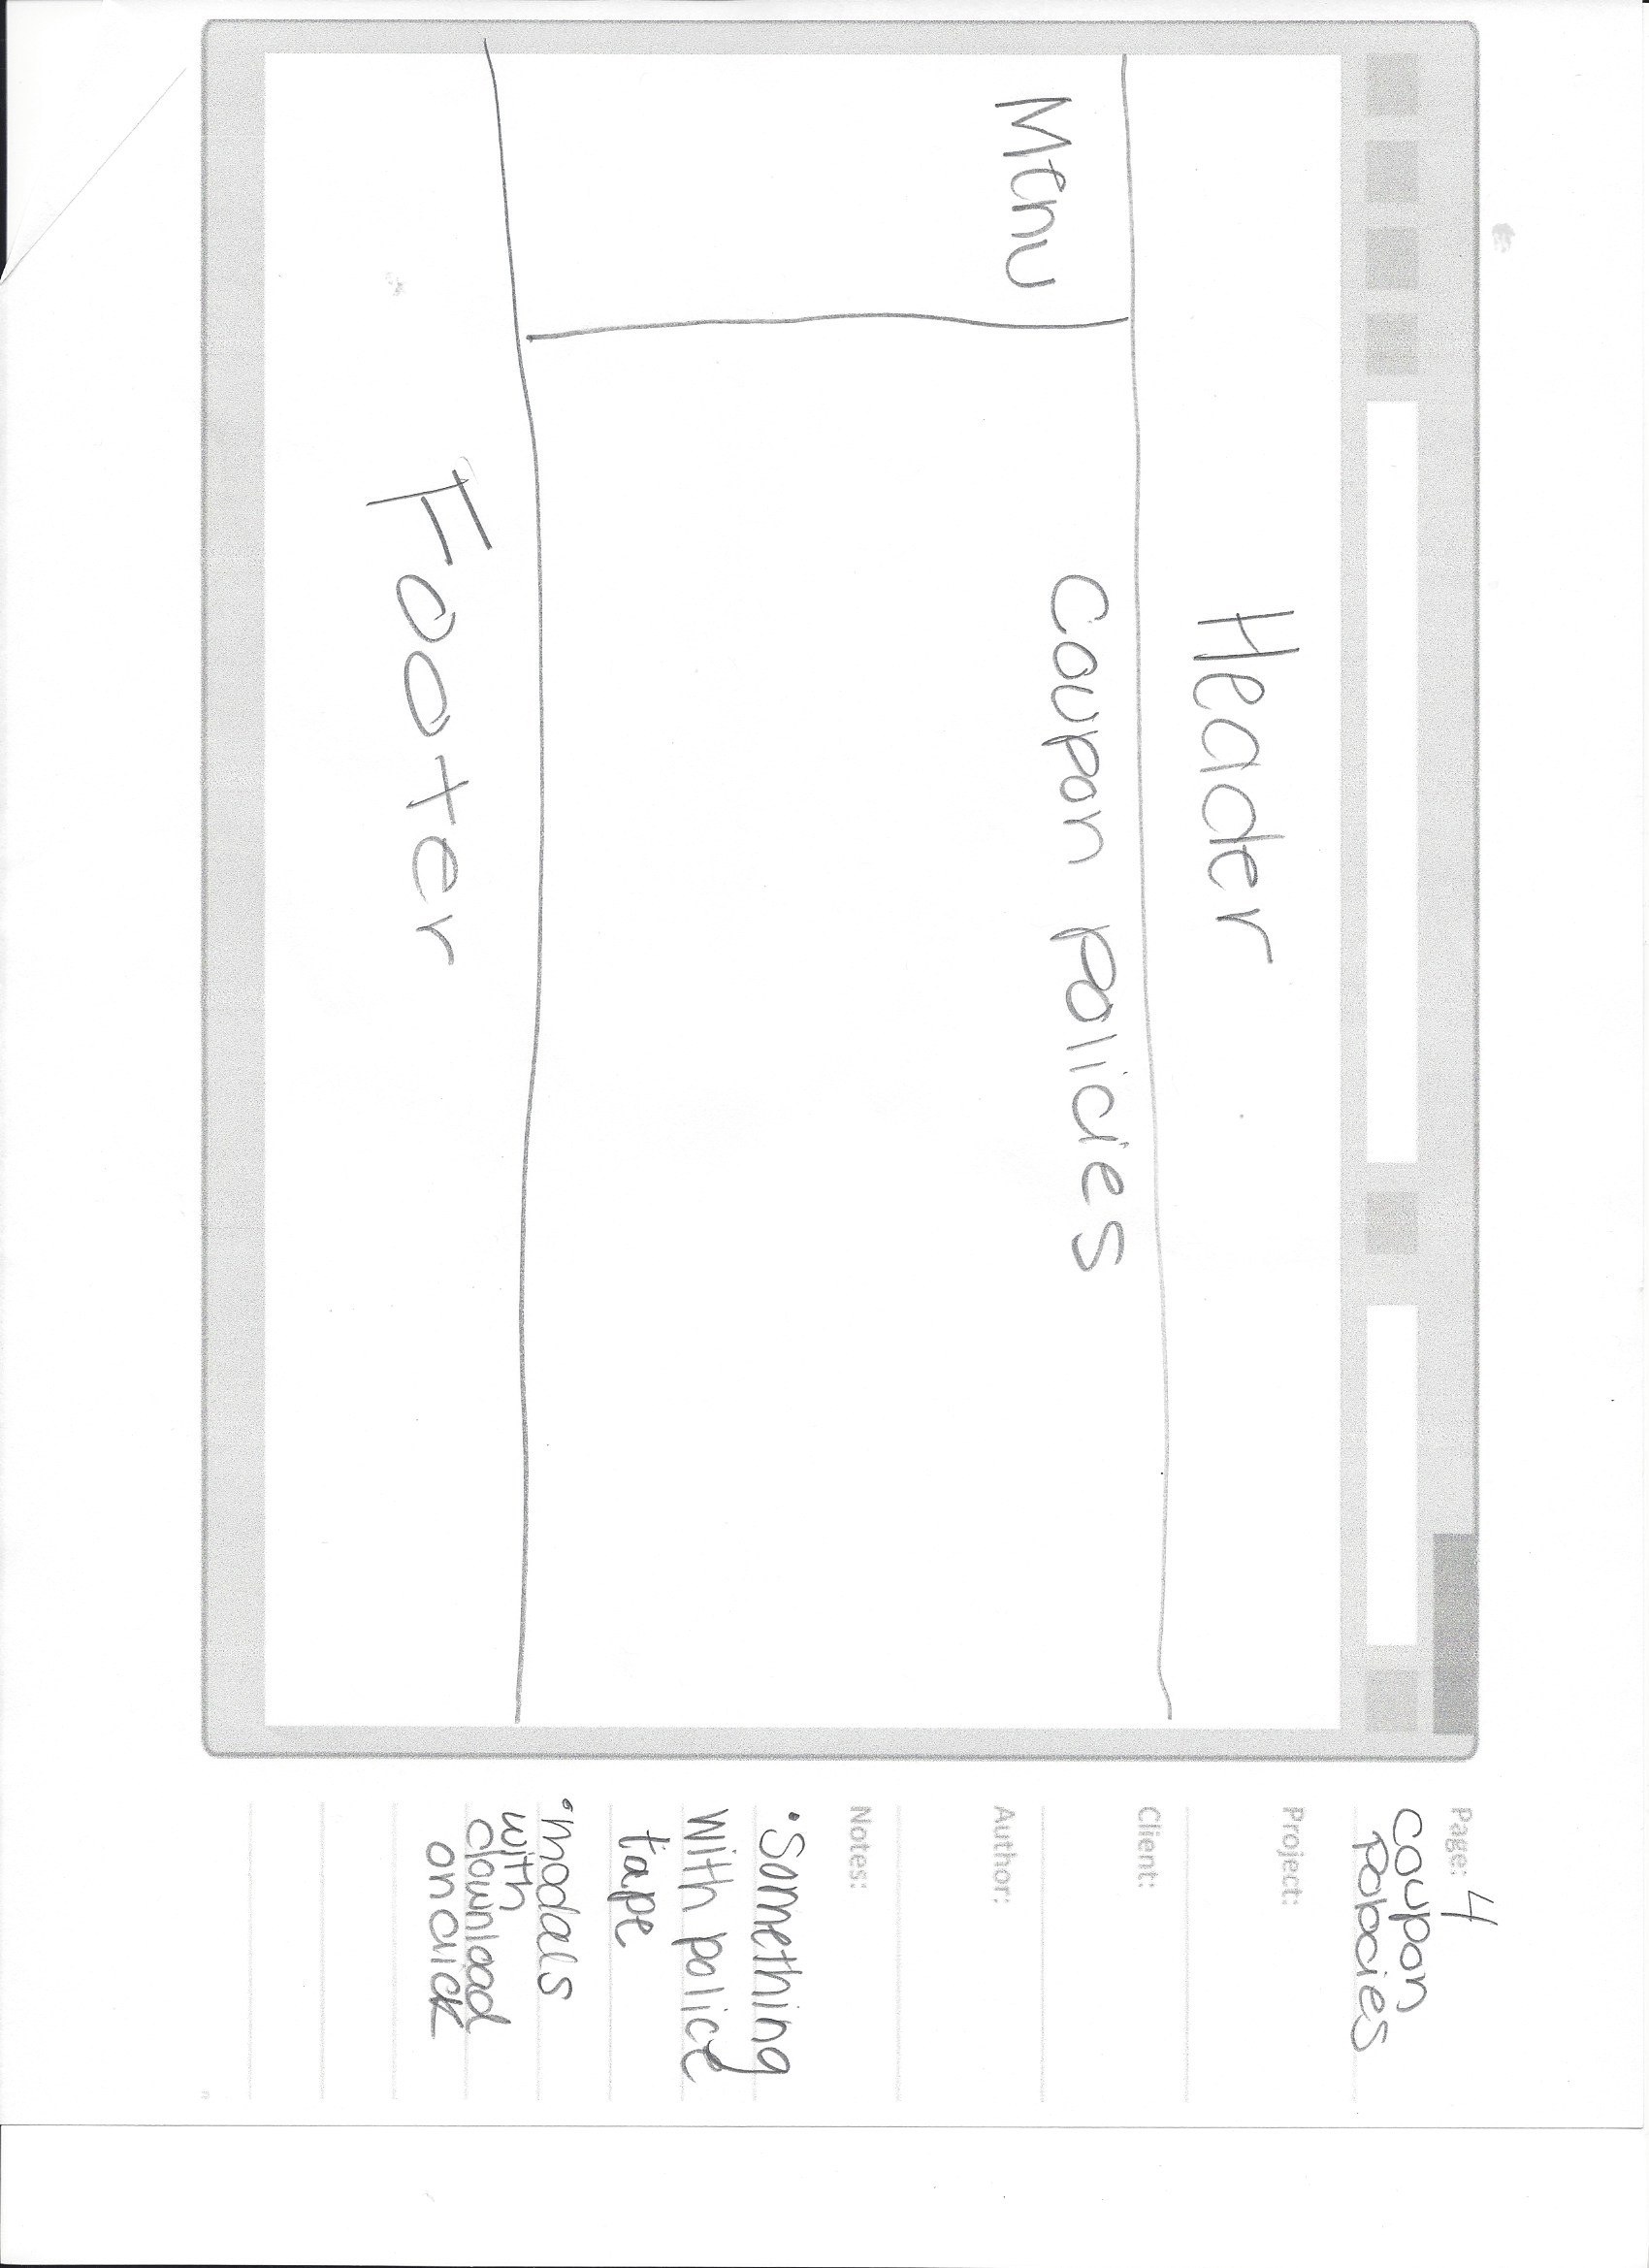 Header
Menu
Coupon Policies
Footer
Page: 4
Coupon
Policies
Project:
Client:
Author:
Notes:
• Something
With police
tape
• modals
with
download
on click